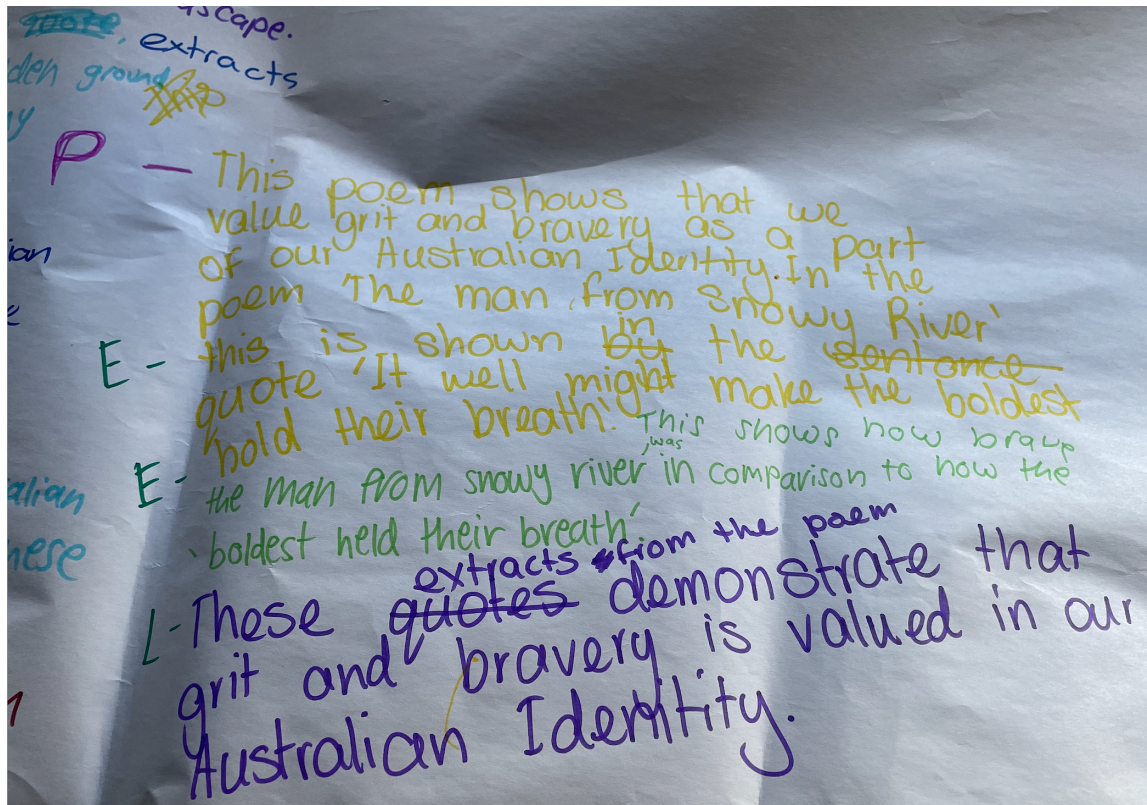 quote, extracts
ground
P - This poem shows that we
value grit and bravery as a part
of our Australian Identity. In the
poem 'The man from Snowy River'
E - this is shown by in the sentance
quote 'It well might make the boldest
hold their breath.' This shows how brave
E - the man from snowy river was in comparison to how the
'boldest held their breath'.
L - These quotes extracts from the poem demonstrate that
grit and bravery is valued in our
Australian Identity.